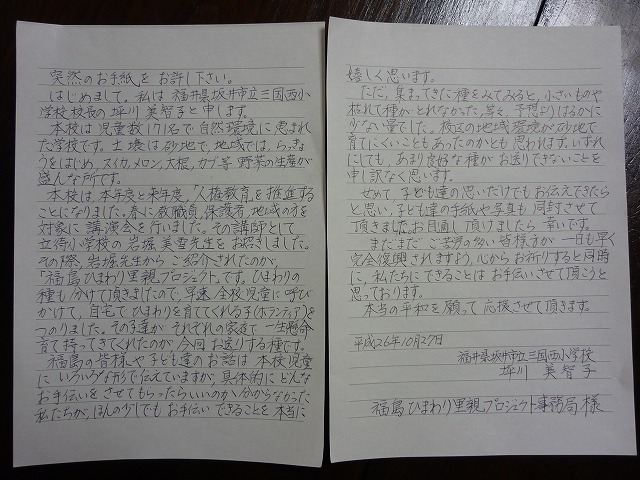 突然のお手紙をお許し下さい。
はじめまして。私は福井県坂井市立三国西小
学校校長の坪川美智子と申します。
本校は児童数171名で自然環境に恵まれ
た学校です。土壌は砂地で、地域では、らっきょ
うをはじめ、スイカ、メロン、大根、カブ等野菜の生産が
盛んな所です。
本校は、本年度と来年度、「人権教育」を推進する
ことになりました。春に教職員、保護者、地域の方を
対象に講演会を行いました。その講師として
立待小学校の岩堀美雪先生をお招きしました。
その際、岩堀先生からご紹介されたのが、
「福島ひまわり里親プロジェクト」です。ひまわりの
種も分けて頂きましたので、早速、全校児童に呼び
かけて、自宅でひまわりを育ててくれる子(ボランティア)を
つのりました。その子達がそれぞれの家庭で一生懸命
育て持ってきてくれたのが今回お送りする種です。
福島の皆様や子ども達のお話は本校児童
にいろいろな形で伝えていますが、具体的にどんな
お手伝いをさせてもらったらいいのか分からなかった
私たちが、ほんの少しでもお手伝いできることを本当に
嬉しく思います。
ただ、集まってきた種をみてみると、小さいものや
枯れて種がとれなかった等々、予想よりはるかに
少ない量でした。校区の地域環境が砂地で
育てにくいこともあったのかとも思われます。いずれ
にしても、あまり良好な種がお送りできないことを
申し訳なく思います。
せめて、子ども達の思いだけでもお伝えできたら
と思い、子ども達の手紙や写真も同封させて
頂きました。お目通し頂けましたら幸いです。
まだまだご苦労の多い皆様方が一日も早く
完全復興されますよう、心からお祈りすると同時
に、私たちにできることはお手伝いさせて頂こうと
思っております。
本当の平和を願って応援させて頂きます。
平成26年10月27日
福井県坂井市立三国西小学校
坪川 美智子
福島ひまわり里親プロジェクト事務局 様